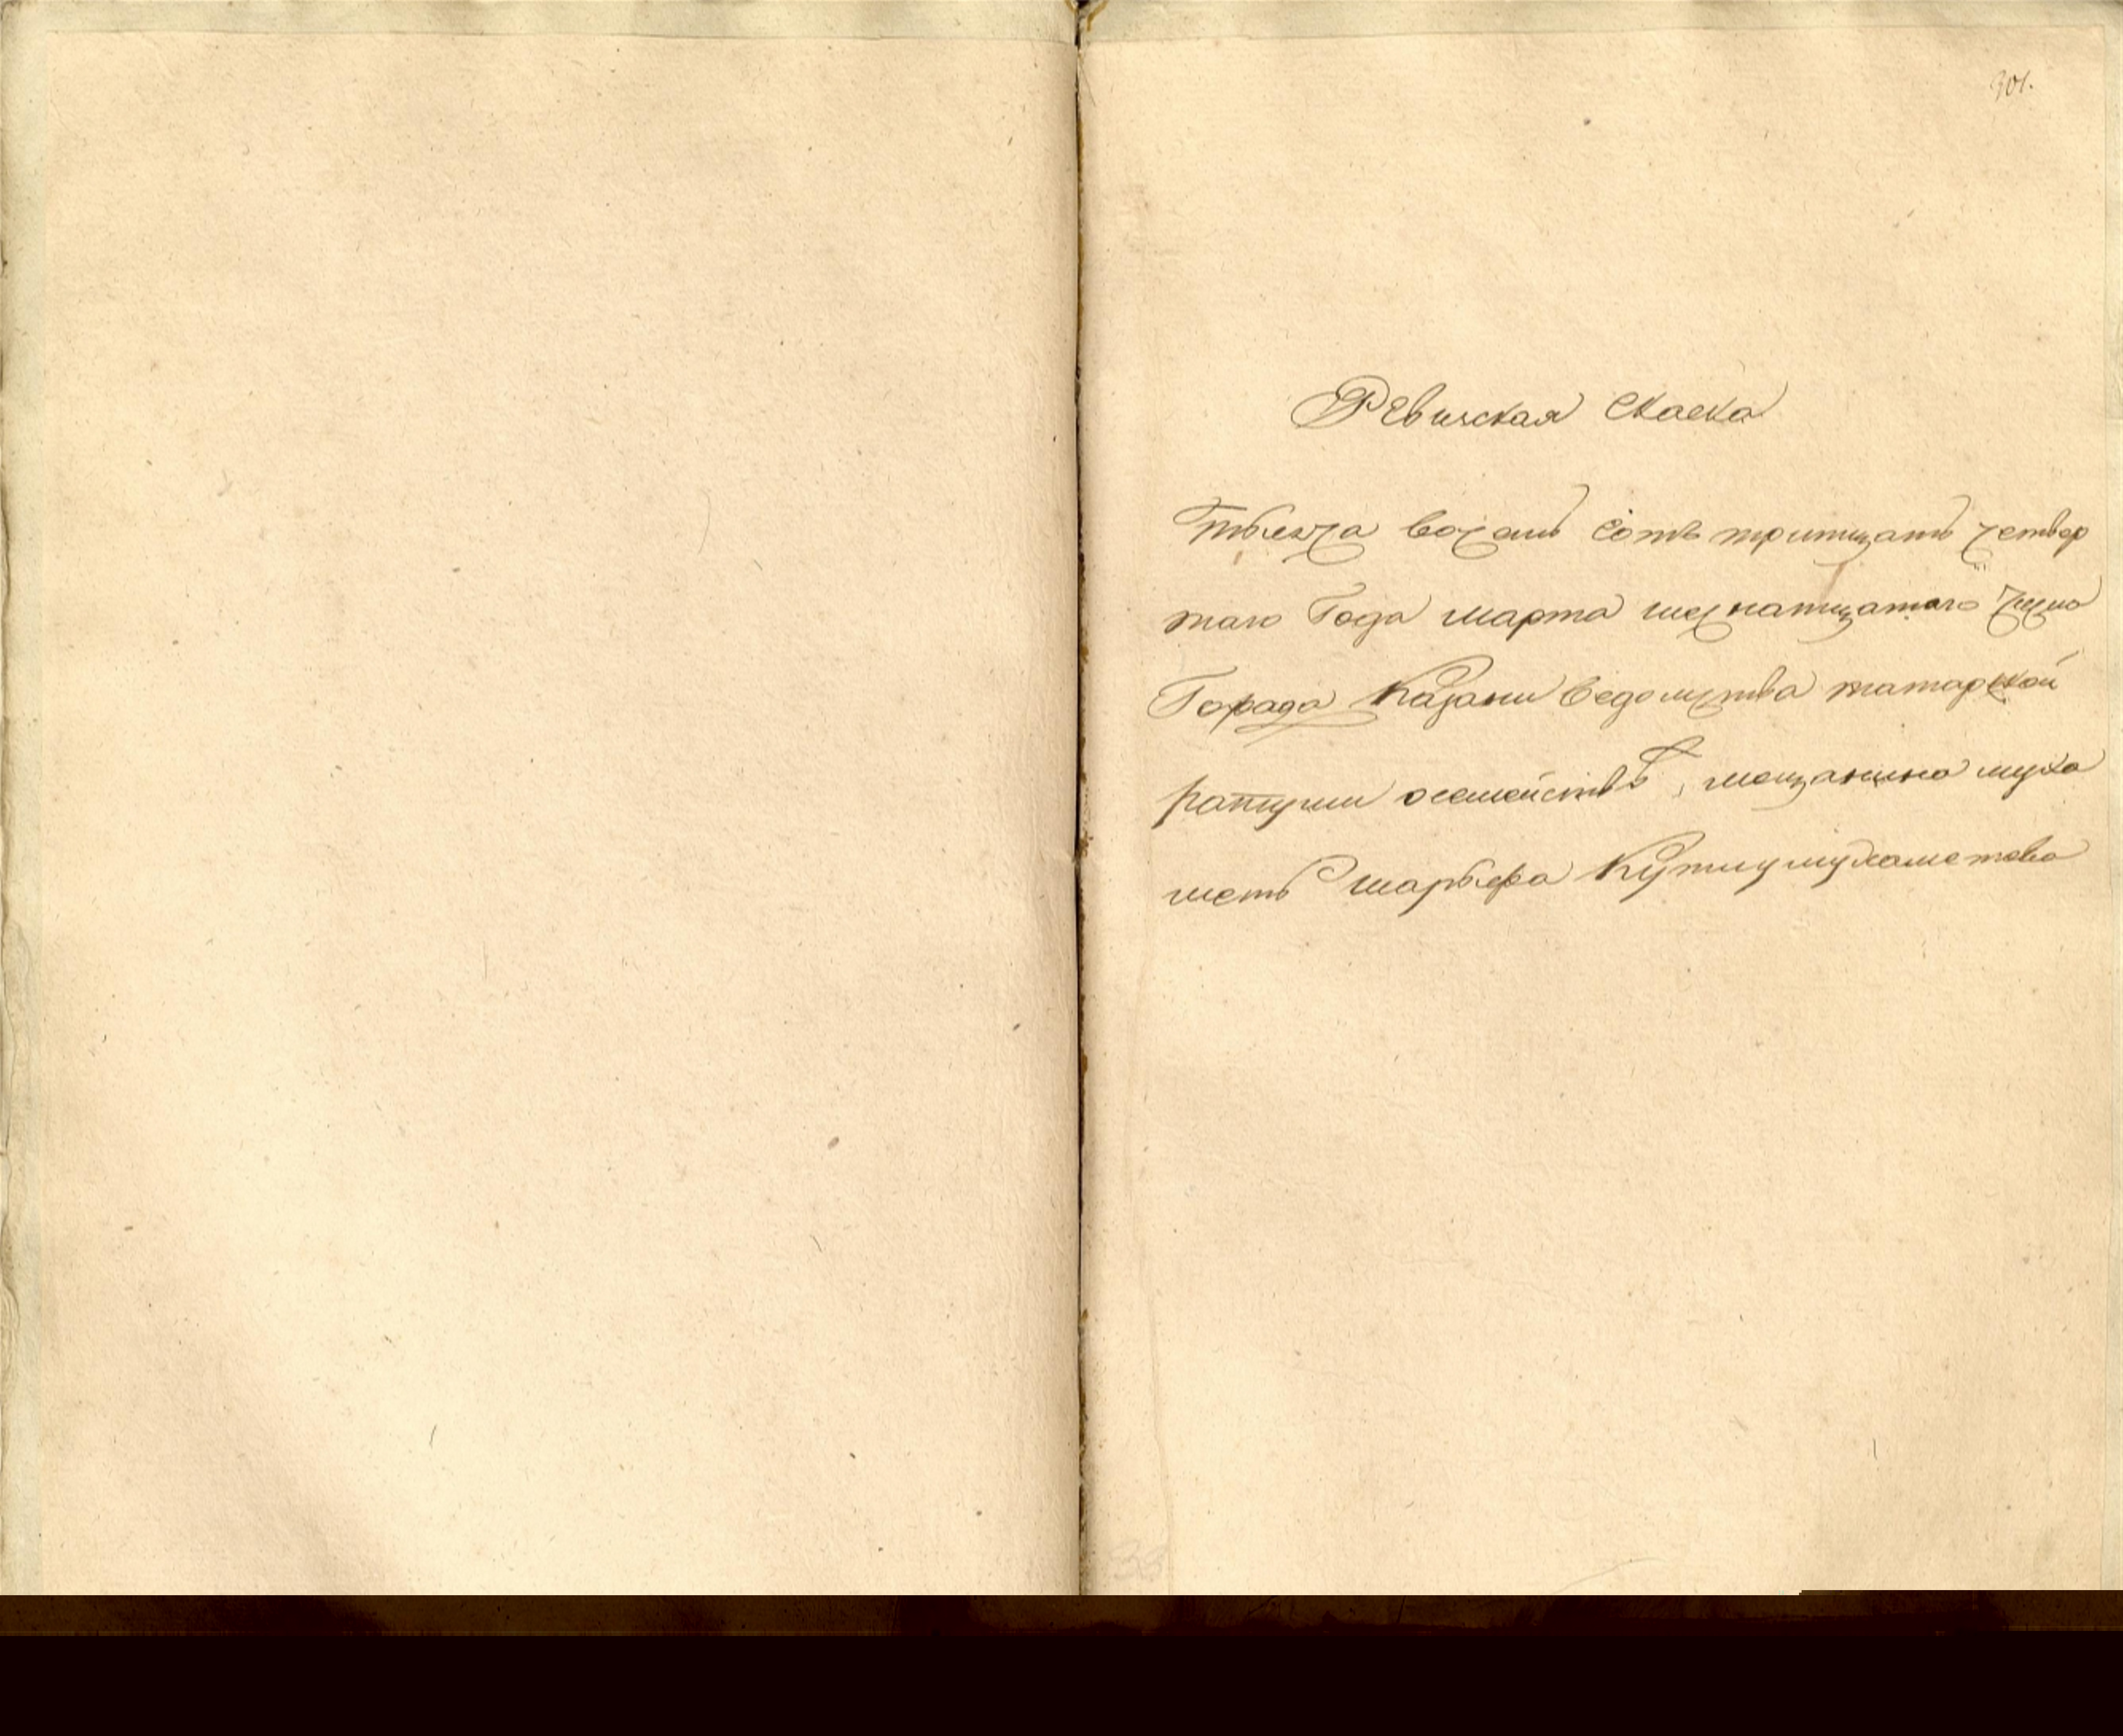 301.
Ревиская Скаска
тысеча восемь сотъ тритцать четвер
таго Года марта шеснатцатого числа
Города Казани ведомства татарской
ратуши осемействѣ, мещанина муха
метъ шарыфа Кутлумухаметова
33